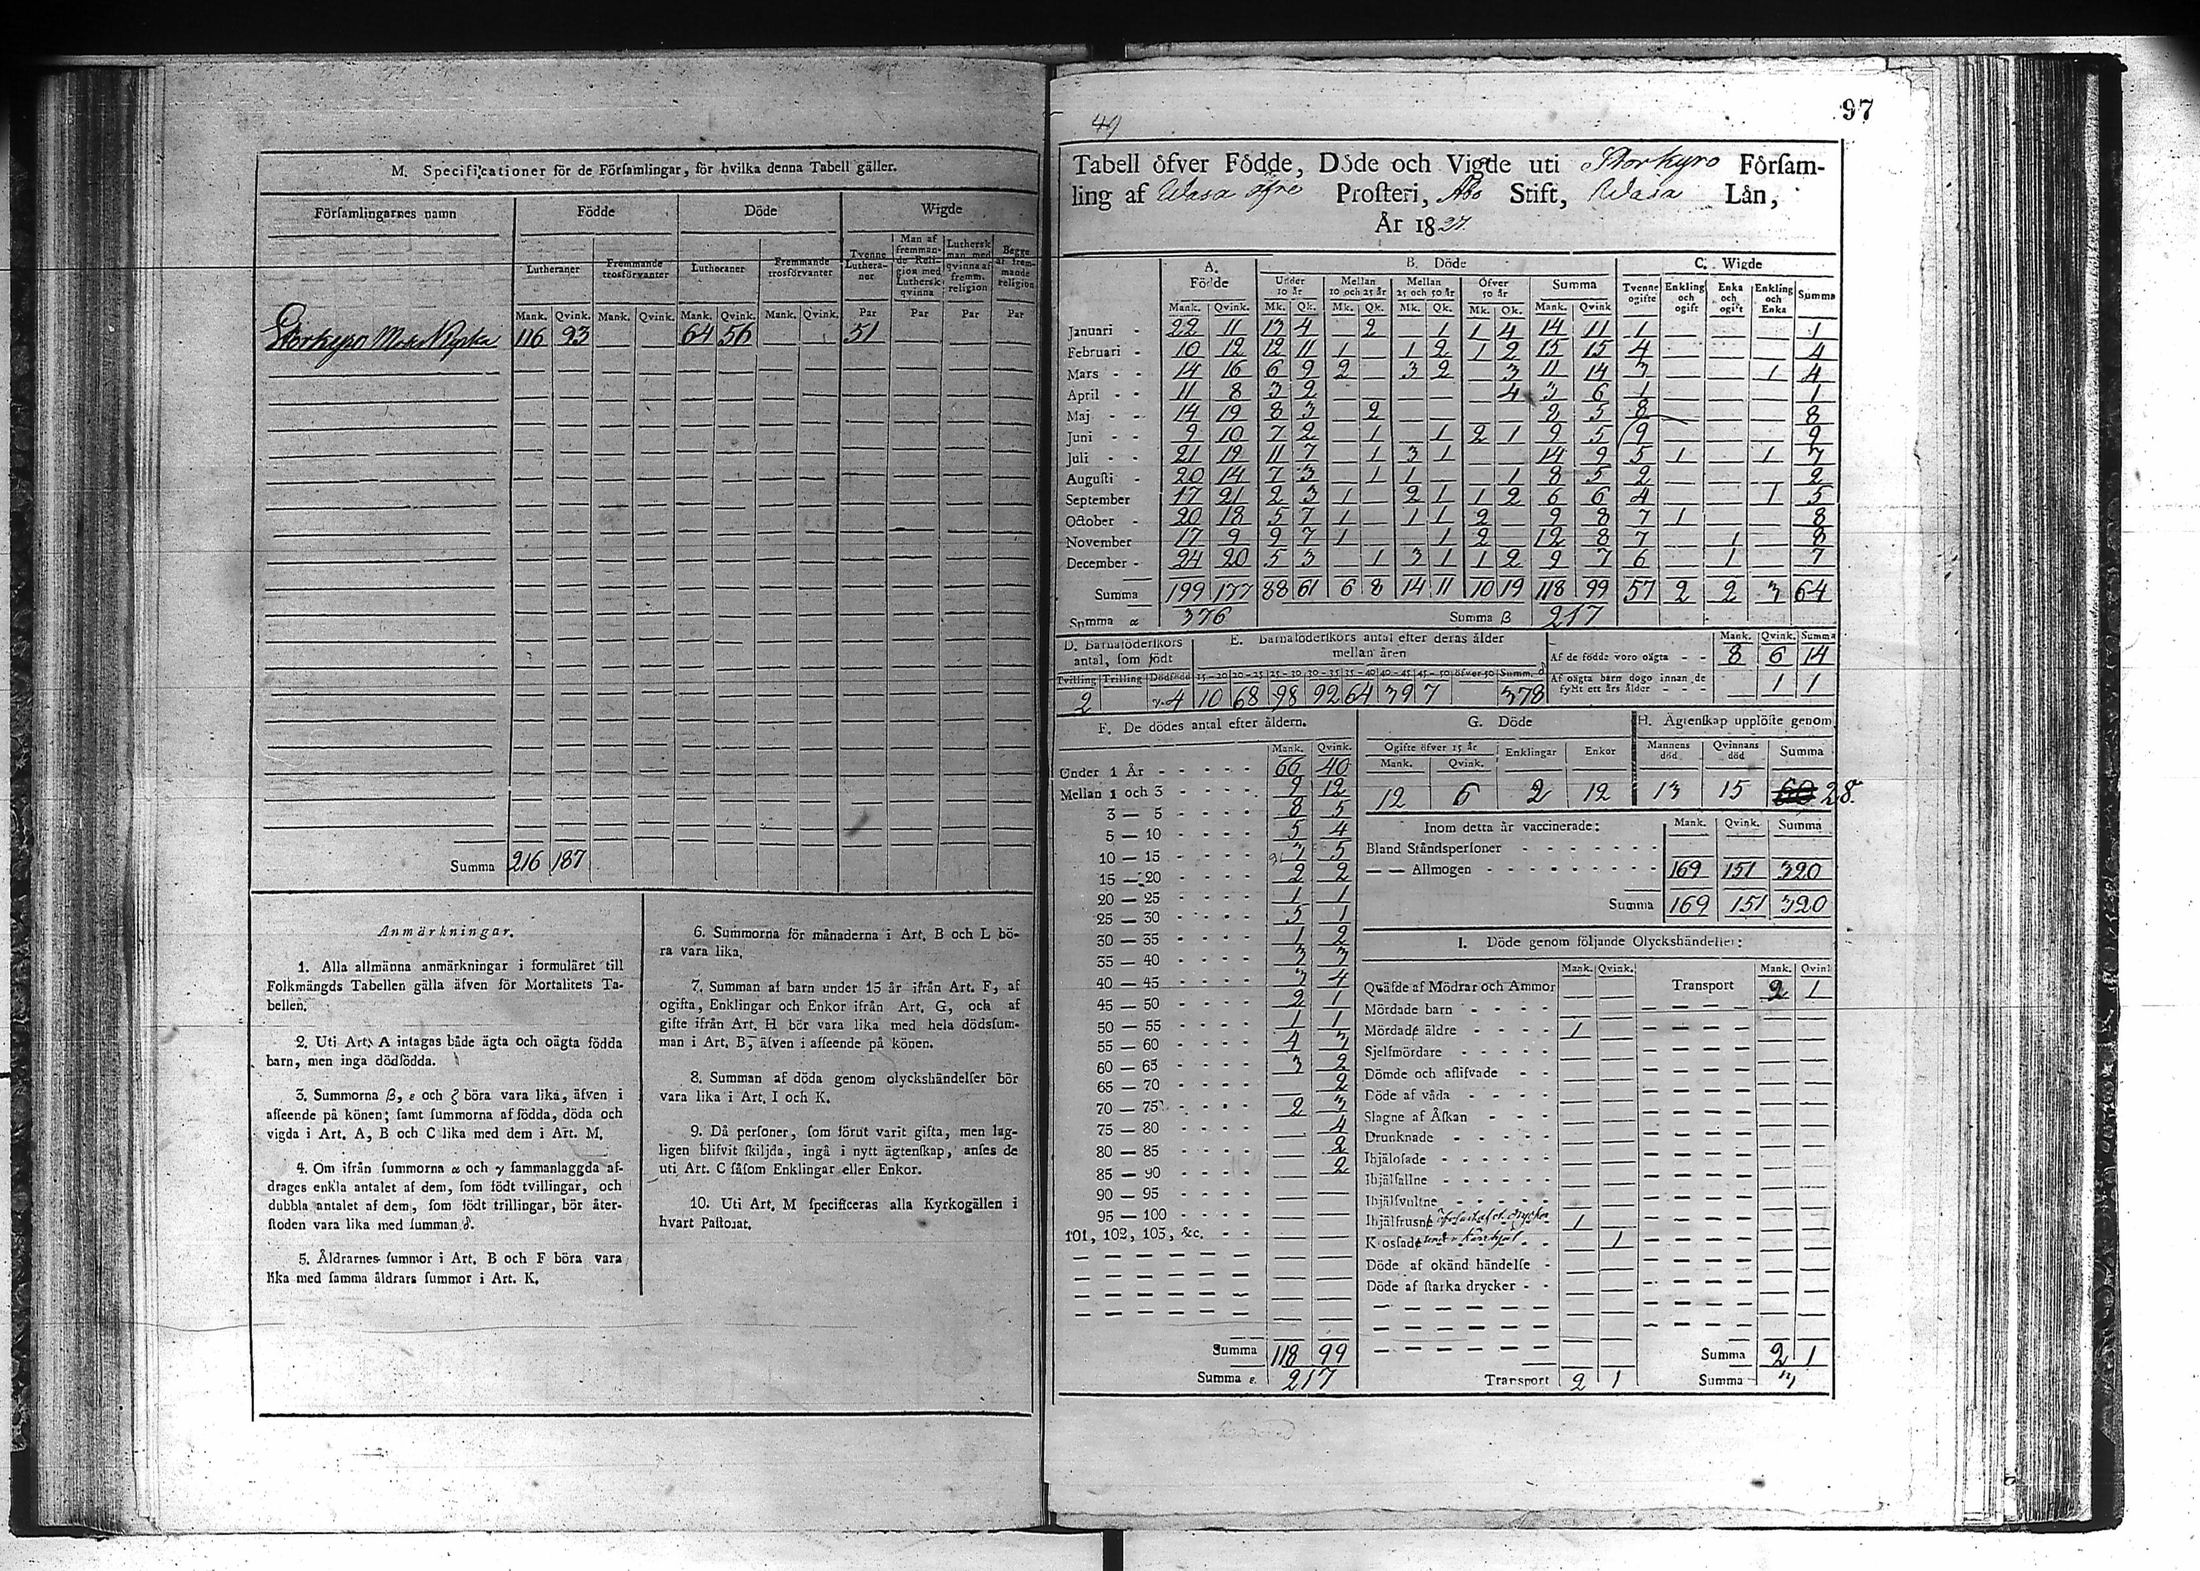 M. Specificationer för de Församlingar, för hvilka denna Tabell gäller.
Församlingarnes namn Födde Döde Wigde
Lutheraner Fremmande trosförvanter Lutheraner Fremmande trosförvanter Tvenne Lutheraner Man af fremmande Religion med Luthersk qvinna Luthersk man med qvinna af fremm. religion Begge af fremmande religion
Mank. Qvink. Mank. Qvink. Mank. Qvink. Mank. Qvink. Par Par Par Par
Storkyro 116 93 — — 64 56 — — 51 — — —
Summa 216 187
Anmärkningar.
1. Alla allmänna anmärkningar i formuläret till
Folkmängds Tabellen gälla äfven för Mortalitets Ta-
bellen.
2. Uti Art. A intagas både ägta och oägta födda
barn, men inga dödfödda.
3. Summorna β, ε och ζ böra vara lika, äfven i
afseende på könen; samt summorna af födda, döda och
vigda i Art. A, B och C lika med dem i Art. M.
4. Om ifrån summorna α och γ sammanlaggda af-
drages enkla antalet af dem, som födt tvillingar, och
dubbla antalet af dem, som födt trillingar, bör åter-
stoden vara lika med summan δ.
5. Åldrarnes summor i Art. B och F böra vara
lika med samma åldrars summor i Art. K.
6. Summorna för månaderna i Art. B och L bö-
ra vara lika.
7. Summan af barn under 15 år ifrån Art. F, af
ogifta, Enklingar och Enkor ifrån Art. G, och af
gifte ifrån Art. H bör vara lika med hela dödssum-
man i Art. B, äfven i afseende på könen.
8. Summan af döda genom olyckshändelser bör
vara lika i Art. I och K.
9. Då personer, som förut varit gifta, men lag-
ligen blifvit skiljda, ingå i nytt ägtenskap, anses de
uti Art. C såsom Enklingar eller Enkor.
10. Uti Art. M specificeras alla Kyrkogällen i
hvart Pastorat.
49
97
Tabell öfver Födde, Döde och Vigde uti Storkyro Församling
af Wasa öfre Prosteri, Åbo Stift, Wasa Län,
År 1827.
A. Födde B. Döde C. Wigde
Under 10 år Mellan 10 och 25 år Mellan 25 och 50 år Öfver 50 år Summa Tvenne ogifte Enkling och ogift Enka och ogift Enkling och Enka Summa
Mank. Qvink. Mk. Qk. Mk. Qk. Mk. Qk. Mk. Qk. Mank. Qvink
Januari - 22 11 13 4 2 1 1 4 14 11 1 — — — 1
Februari - 10 12 12 11 1 — 1 2 1 2 15 15 4 — — — 4
Mars - - 14 16 6 9 2 — 3 2 — 3 11 14 3 — — 1 4
April - - 11 8 3 2 — — — — — 4 3 6 1 — — — 1
Maj - - 14 19 8 3 — 2 — — — — 2 5 8 — — — 8
Juni - - 9 10 7 2 — 1 — 1 2 1 9 5 9 — — — 9
Juli - - 21 19 11 7 — 1 3 1 — — 14 9 5 1 — 1 7
Augusti - 20 14 7 3 — 1 1 — — 1 8 5 2 — — — 2
September 17 21 2 3 1 — 2 1 1 2 6 6 4 — — 1 5
October - 20 18 5 7 1 — 1 1 2 — 9 8 7 1 — — 8
November 17 9 9 7 1 — — 1 2 — 12 8 7 — 1 — 8
December - 24 20 5 3 — 1 3 1 1 2 9 7 6 — 1 — 7
Summa 199 177 88 61 6 8 14 11 10 19 118 99 57 2 2 3 64
Summa α 376 Summa β 217
D. Barnaföderskors antal, som födt
Tvilling Trilling Dödfödd
2 γ. 4
E. Barnaföderskors antal efter deras ålder mellan åren
15-20 20-25 25-30 30-35 35-40 40-45 45-50 öfver 50 Summ. δ
10 68 98 92 64 39 7 378
Mank. Qvink. Summa
Af de födde voro oägta - - 8 6 14
Af oägta barn dogo innan de fyllt ett års ålder - - - — 1 1
F. De dödes antal efter åldern.
Mank. Qvink.
Under 1 År - - - - - 66 40
Mellan 1 och 3 - - - - 9 12
3 — 5 - - - - 8 5
5 — 10 - - - - 5 4
10 — 15 - - - - 3 5
15 — 20 - - - - 2 2
20 — 25 - - - - 1 1
25 — 30 - - - - 5 1
30 — 35 - - - - 1 2
35 — 40 - - - - 3 3
40 — 45 - - - - 3 4
45 — 50 - - - - 2 1
50 — 55 - - - - 1 1
55 — 60 - - - - 4 3
60 — 65 - - - - 3 2
65 — 70 - - - - — 2
70 — 75 - - - - 2 3
75 — 80 - - - - — 4
80 — 85 - - - - — 2
85 — 90 - - - - — 2
90 — 95 - - - - — —
95 — 100 - - - - — —
101, 102, 103, &c. - - — —
Summa 118 99
Summa ε. 217
G. Döde
Ogifte öfver 15 år Enklingar Enkor
Mank. Qvink.
12 6 2 12
H. Ägtenskap upplöste genom
Mannens död Qvinnans död Summa
13 15 28.
Inom detta år vaccinerade: Mank. Qvink. Summa
Bland Ståndspersoner - - - - - — — —
— — Allmogen - - - - - 169 151 320
Summa 169 151 320
I. Döde genom följande Olyckshändelser:
Mank. Qvink. Mank. Qvink
Qväfde af Mödrar och Ammor — — Transport 2 1
Mördade barn - - - - — —
Mördade äldre - - - - 1 —
Sjelfmördare - - - - — —
Dömde och aflifvade - - — —
Döde af våda - - - - — —
Slagne af Åskan - - - — —
Drunknade - - - - — —
Ihjälosade - - - - — —
Ihjälfallne - - - - — —
Ihjälsvultne - - - - — —
Ihjälfrusne 1 —
Krossade — 1
Döde af okänd händelse - — —
Döde af starka drycker - - — —
Summa 2 1
Transport 2 1 Summa 3